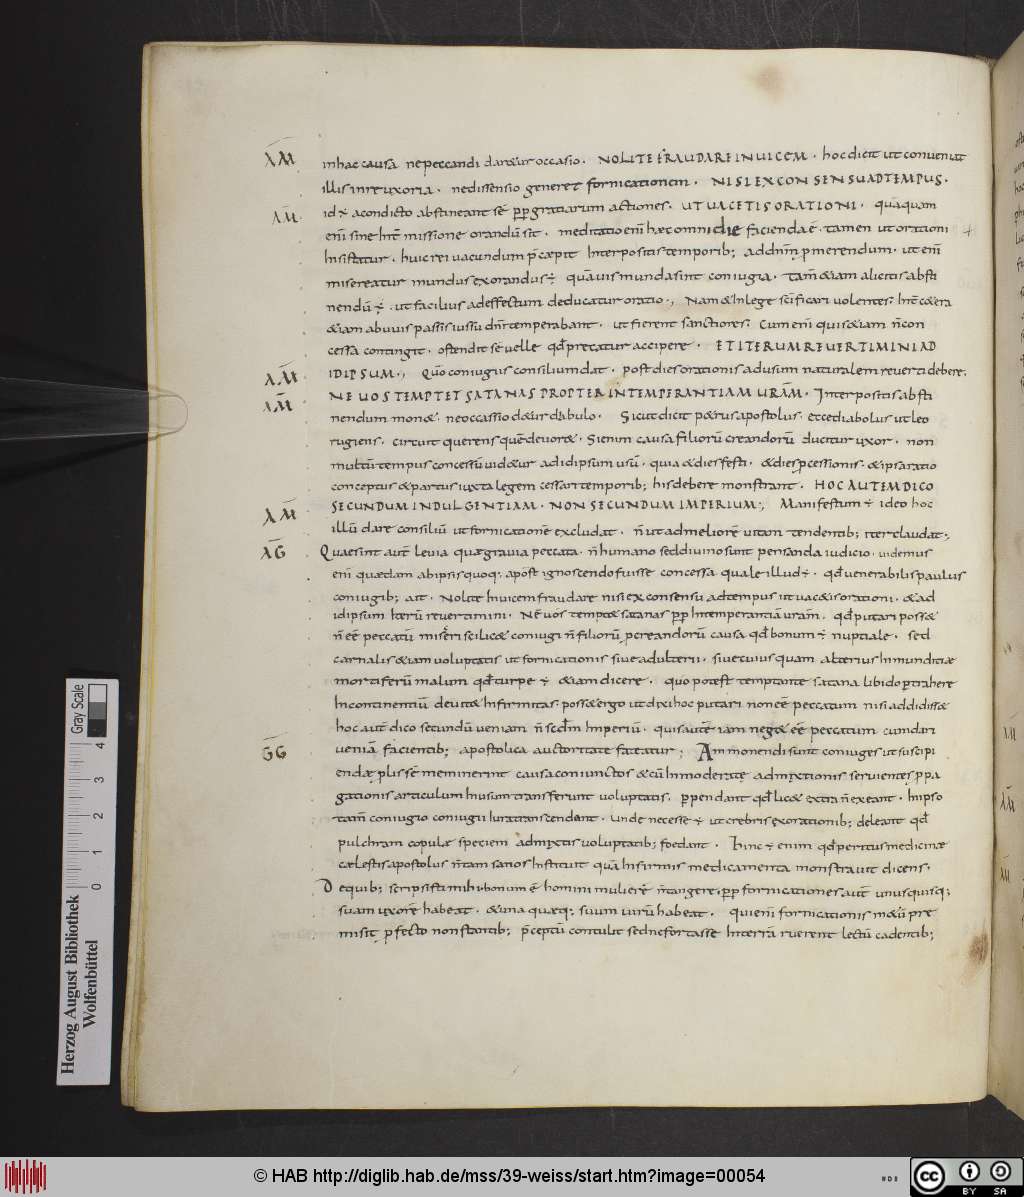 ĀM̄ in hac causa ne peccandi daretur occasio. NOLITE FRAUDARE INUICEM. hoc dicit ut conueniat
illis in re uxoria. ne dissensio generet fornicationem. NISI EX CONSENSU AD TEMPUS.
ĀM̄ id ÷ a condicto abstineant sē ꝓp gratiarum actiones. UT UACETIS ORATIONI. quāquam
enī sine intermissione orandū sit. meditatio enī haec omni die facienda ē. tamen ut orationi
insistatur. huic rei uacundum p̄cæpit interpositis temporib; ad dn̄m p̄merendum. ut enī
misereatur mundus exorandus ÷ quāuis munda sint coniugia. tam̄ &iam a licitis absti
nendū ÷. ut facilius ad effectum deducatur oratio., Nam & in lege sc̄ificari uolentes; int̄ cætera
&iam ab uuis passis iussu dn̄i temperabant. ut fierent sanctiores; Cum enī quis &iam n̄ con
cessa contingit. ostendit sē uelle qđ precatur accipere. ET ITERUM REUERTIMINI AD
ĀM̄ ID IPSUM., Quō coniugiis consilium dat. post dies orationis ad usum naturalem reuerti debere;
ĀM̄ NE UOS TEMPTET SATANAS PROPTER INTEMPERANTIAM URĀM. Interpositis absti
nendum mon&. ne occassio d&ur diabulo. Sicut dicit p&rus apostolus. ecce diabolus ut leo
rugiens. circuit querens quē deuor&. Si enim causa filiorū creandorū ducitur uxor. non
multū tempus concessū uid&ur ad id ipsum usū. quia & dies festi. & dies p̄cessionis. & ipsa ratio
conceptus & partus iuxta legem cessari temporib; his debere monstrant. HOC AUTEM DICO
ĀM̄ SECUNDUM INDULGENTIAM. NON SECUNDUM IMPERIUM;, Manifestum ÷ ideo hoc
illū dare consiliū ut fornicationē excludat. n̄ ut ad meliorē uitam tendentib; iter claudat.,
ĀḠ Quae sint autē leuia quæ grauia peccata. n̄ humano sed diuino sunt pensanda iudicio. uidemus
enī quædam ab ipsis quoq; apōst ignoscendo fuisse concessa quale illud ÷. qđ uenerabilis paulus
coniugib; ait. Nolite inuicem fraudare nisi ex consensu ad tempus ut uac&is orationi. & ad
id ipsum iterū reuertimini. Nē uos tempt& satanas ꝓp intemperantiā uram. qđ putari poss&
n̄ ēē peccatū misceri scilic& coniugi n̄ filiorū pcreandorū causa qđ bonum ÷ nuptiale. sed
carnalis &iam uoluptatis ut fornicationis siue adulterii. siue cuius quam alterius inmunditiæ
mortiferū malum qđ turpe ÷ &iam dicere. quo potest temptante satana libido p̱trahere
incontinentiū deuit& infirmitas. poss& ergo ut dixi hoc putari non ēē peccatum nisi addidiss&
hoc autē dico secundū ueniam n̄ scđm imperiū. quis autē iam neg& ēē peccatum cum dari
ḠḠ ueniā facientib; apostolica auctoritate fateatur; Ammonendi sunt coniuges ut suscipi
endæ plis sē meminerint causa coniunctos & cū inmoderatę admixtionis seruientes ꝓpa
gationis articulum in usum transferunt uoluptatis. p̱pendant qđ lic& extra n̄ exeant. in ipso
tam̄ coniugio coniugii iura transcendant. unde necesse ÷ ut crebris exorationib; deleant qđ
pulchram copulæ speciem admixtis uoluptatib; foedant. hinc ÷ enim qđ peritus medicinæ
cælestis apostolus n̄ tam sanos instituit quā infirmis medicamenta monstrauit dicens.
De quib; scripsistis mihi bonum ē homini mulierē n̄ tangere. ꝓp fornicationes autē unusquisq;
suam uxorē habeat. & una quæq; suum uirū habeat. qui enī fornicationis m&ū pre
misit p̱fecto non stantib; p̄ceptū contulit sed ne fortasse in terrā ruerent lectū cadentib;
Herzog August Bibliothek
Wolfenbüttel
Gray Scale
0 1 2 3 4
© HAB http://diglib.hab.de/mss/39-weiss/start.htm?image=00054
cc BY SA